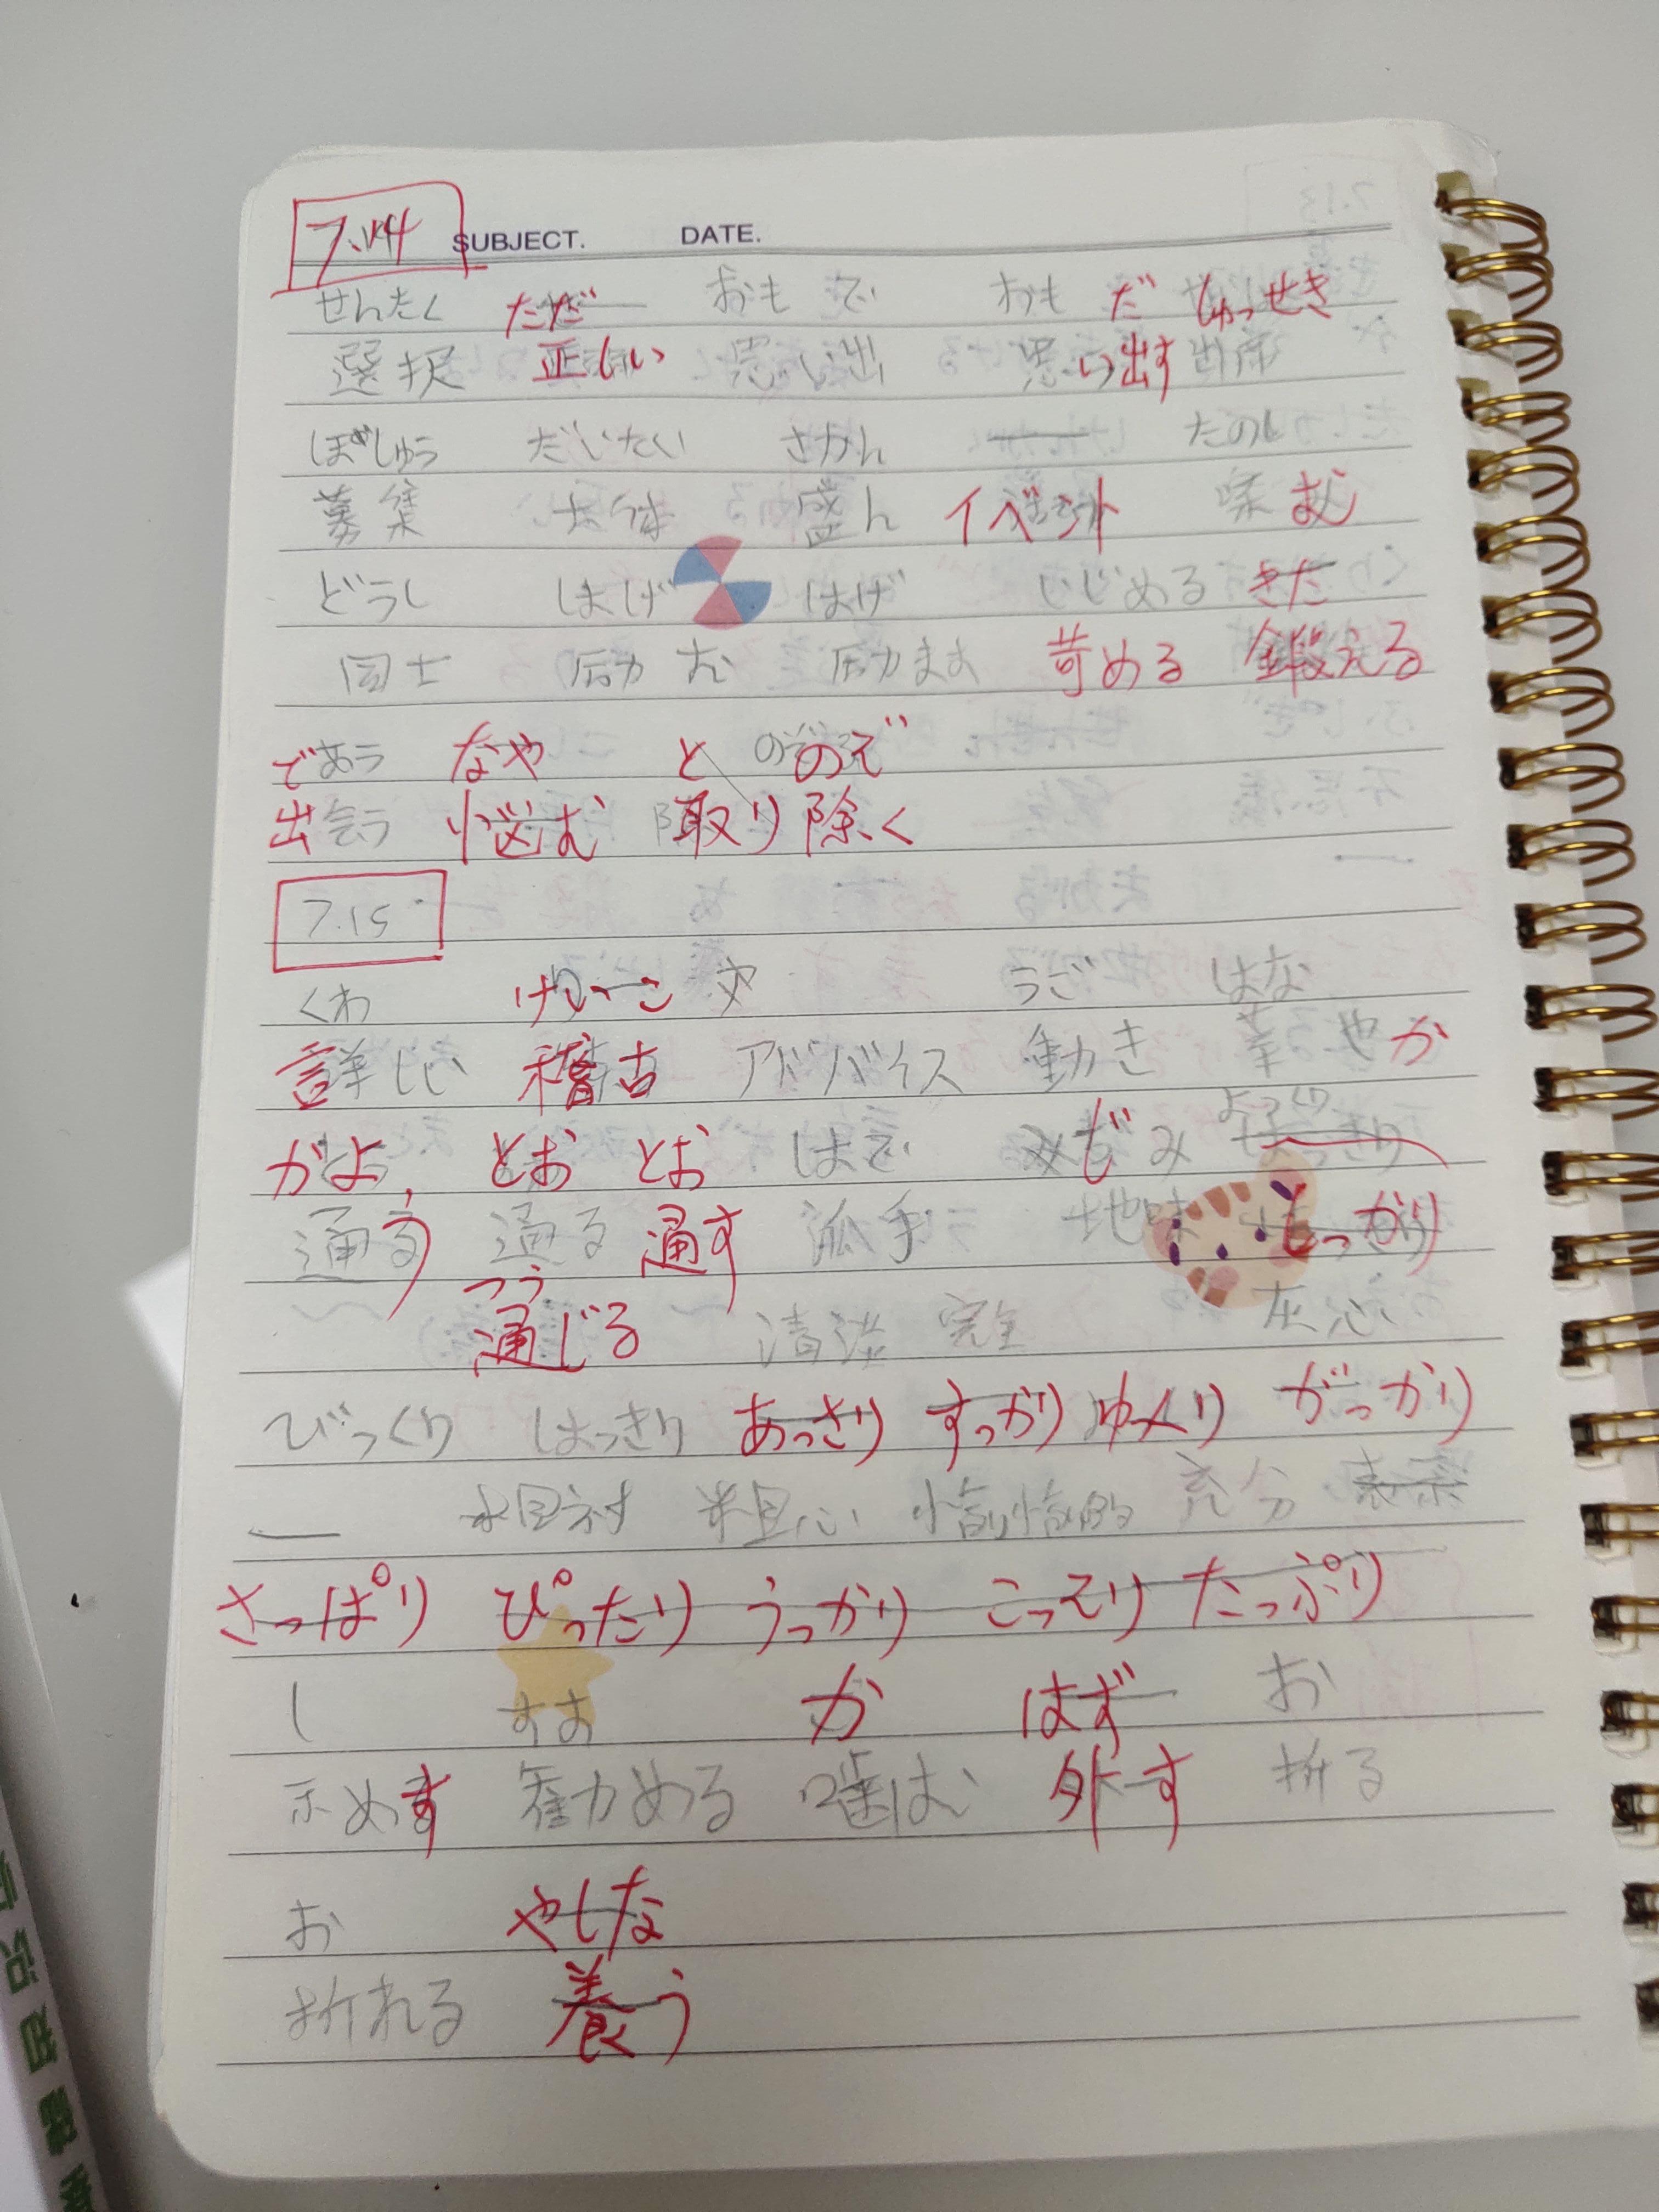 7.14 SUBJECT. DATE.
せんたく ただ おも で おも だ しゅっせき
選択 正しい 思い出 思い出す 出席
ぼしゅう だいたい さかん たのし
募集 大体 盛ん イベント 楽 む
どうし はげ はげ いじめる きた
同士 励 む 励ます 苛める 鍛える
であう なや と のぞ
出会う 悩む 取り除く
7.15
くわ けいこ うご はな
詳しい 稽古 アドバイス 動き 華やか
かよ とお とお はで じみ
通う 通る 通す 派手 地味 しっかり
つう
通じる 清淡 完全 灰心
びっくり はっきり あっさり すっかり ゆくり がっかり
粗心 悄悄的 充分 表示
さっぱり ぴったり うっかり こっそり たっぷり
し すす か はず お
示めす 勧める 噛む 外す 折る
お やしな
折れる 養う